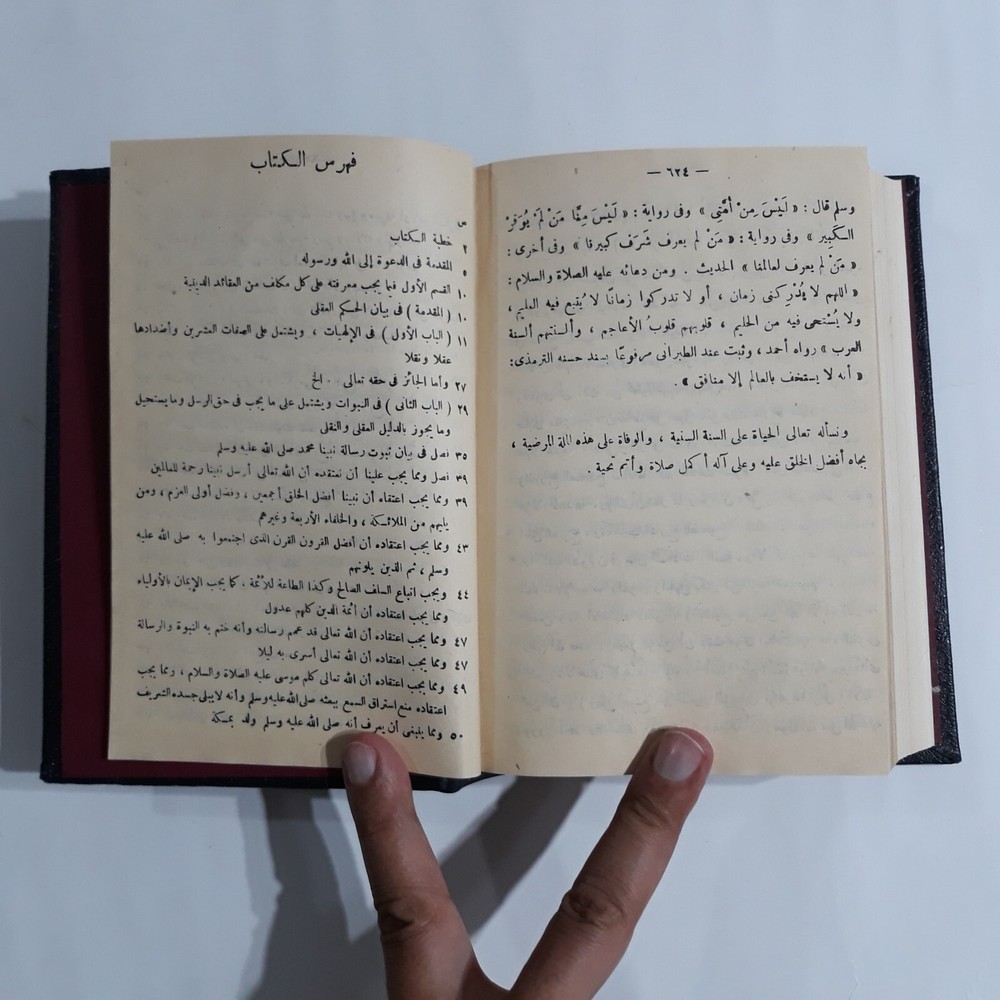 — ٦٢٤ —
وسلم قال : « لَيْسَ مِنْ أمَّتِى » وفى رواية : « لَيْسَ مِنَّا مَنْ لَمْ يُوَقِّرْ
الكَبِير » وفى رواية : « مَنْ لم يعرف شَرَفَ كبيرنا » وفى أخرى :
« مَنْ لم يعرف لعالمنا » الحديث . ومن دعائه عليه الصلاة والسلام :
« اللهم لا يُدْرِكنى زمان ، أو لا تدركوا زمانًا لا يُتبع فيه العليم ،
ولا يُسْتَحى فيه من الحليم ، قلوبهم قلوبُ الأعاجم ، وألسنتهم ألسنة
العرب » رواه أحمد ، وثبت عند الطبرانى مرفوعًا بسند حسنه الترمذى :
« أنه لا يستخف بالعالم إلا منافق » .
ونسأله تعالى الحياة على السنة السنية ، والوفاة على هذه الملة المرضية ،
بجاه أفضل الخلق عليه وعلى آله أكمل صلاة وأتم تحية .
فهرس الكتاب
ص
٢ خطبة الكتاب
٥ المقدمة فى الدعوة إلى الله ورسوله
١٠ القسم الأول فيما يجب معرفته على كل مكلف من العقائد الدينية
١٠ ( المقدمة ) فى بيان الحكم العقلى
١١ ( الباب الأول ) فى الإلهيات ، ويشتمل على الصفات العشرين وأضدادها
عقلا ونقلا
٢٧ وأما الجائز فى حقه تعالى . . الخ
٢٩ ( الباب الثانى ) فى النبوات ويشتمل على ما يجب فى حق الرسل وما يستحيل
وما يجوز بالدليل العقلى والنقلى
٣٥ فصل فى بيان ثبوت رسالة نبينا محمد صلى الله عليه وسلم
٣٩ فصل ومما يجب علينا أن نعتقده أن الله تعالى أرسل نبينا رحمة للعالمين
٣٩ ومما يجب اعتقاه أن نبينا أفضل الخلق أجمعين ، وفضل أولى العزم ، ومن
يليهم من الملائكة ، والخلفاء الأربعة وغيرهم
٤٣ ومما يجب اعتقاده أن أفضل القرون القرن الذى اجتمعوا به صلى الله عليه
وسلم ، ثم الذين يلونهم
٤٤ ويجب اتباع السلف الصالح وكذا الطاعة للأئمة ، كما يجب الإيمان بالأولياء
ومما يجب اعتقاده أن أئمة الدين كلهم عدول
٤٧ ومما يجب اعتقاده أن الله تعالى قد عمم رسالته وأنه ختم به النبوة والرسالة
٤٧ ومما يجب اعتقاده أن الله تعالى أسرى به ليلا
٤٩ ومما يجب اعتقاده أن الله تعالى كلم موسى عليه الصلاة والسلام ، ومما يجب
اعتقاده منع استراق السمع ببعثه صلى الله عليه وسلم وأنه لا يبلى جسده الشريف
٥٠ ومما ينبغى أن يعرف أنه صلى الله عليه وسلم ولد بمكة